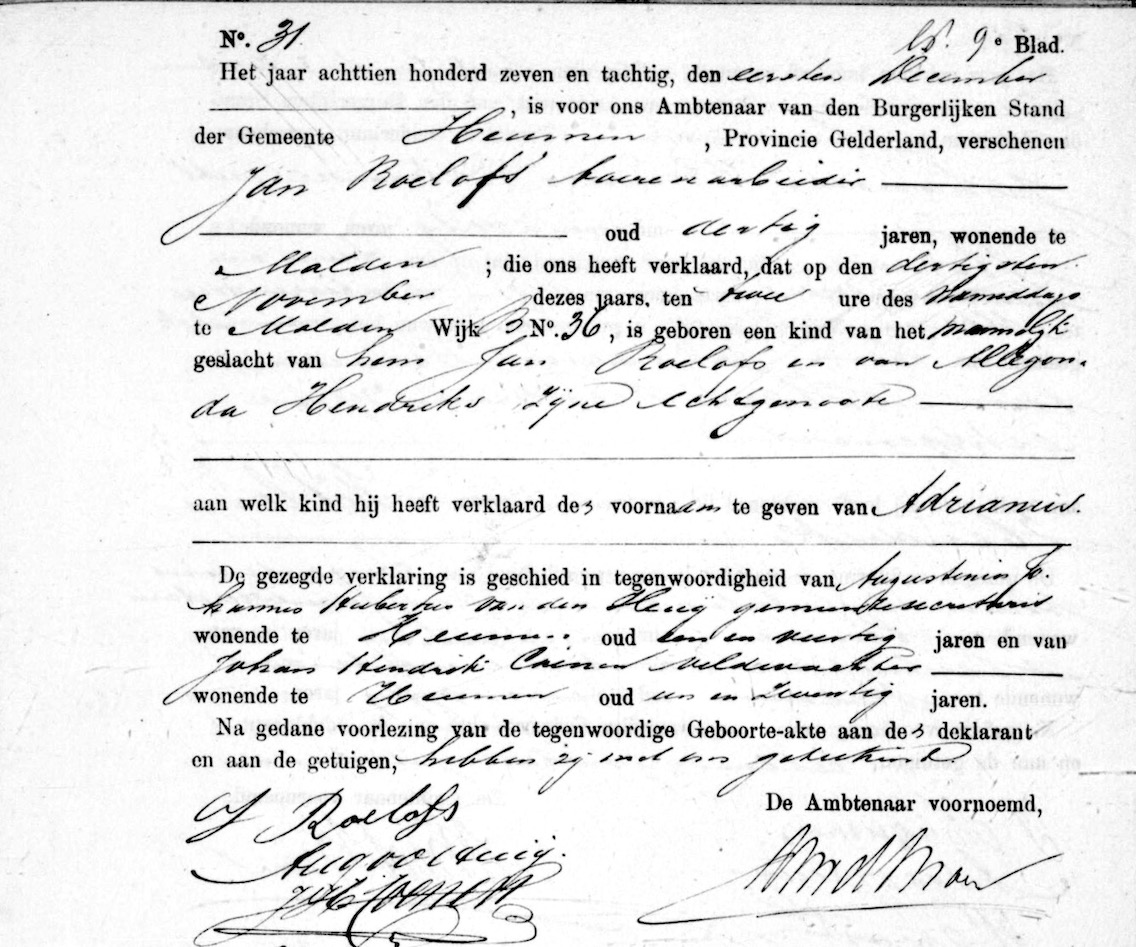 No. 31. 9e Blad.
Het jaar achttien honderd zeven en tachtig, den eersten December
, is voor ons Ambtenaar van den Burgerlijken Stand
der Gemeente Heumen, Provincie Gelderland, verschenen
Jan Roelofs boerenarbeider
oud dertig jaren, wonende te
Malden; die ons heeft verklaard, dat op den dertigsten
November dezes jaars, ten twee ure des namiddags
te Malden Wijk B No. 36, is geboren een kind van het mannelijk
geslacht van hem Jan Roelofs en van Allegon-
da Hendriks zijne echtgenoote
aan welk kind hij heeft verklaard den voornaam te geven van Adrianus.
De gezegde verklaring is geschied in tegenwoordigheid van Augustinus Jo-
hannes Hubertus van den Heuij gemeentesecretaris
wonende te Heumen oud een en veertig jaren en van
Johan Hendrik Coenen veldwachter
wonende te Heumen oud een en twintig jaren.
Na gedane voorlezing van de tegenwoordige Geboorte-akte aan den deklarant
en aan de getuigen, hebben zij met ons geteekend
De Ambtenaar voornoemd,
J Roelofs
JH Coenen